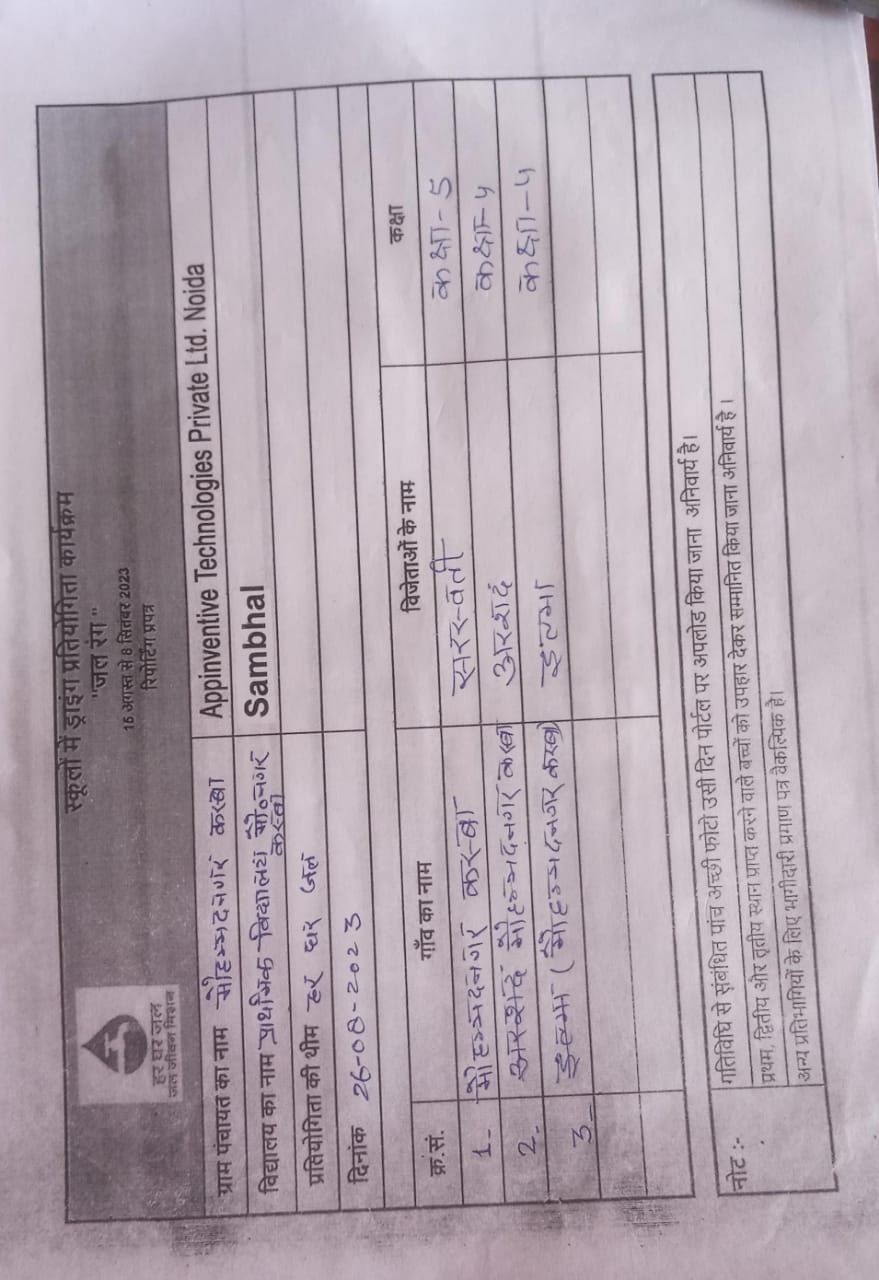 स्कूलों में ड्राइंग प्रतियोगिता कार्यक्रम
"जल रंग"
16 अगस्त से 8 सितंबर 2023
रिपोर्टिंग प्रपत्र
हर घर जल
जल जीवन मिशन
ग्राम पंचायत का नाम मौहम्मदनगर कस्बा Appinventive Technologies Private Ltd. Noida
विद्यालय का नाम प्राथमिक विद्यालय मौ०नगर कस्बा Sambhal
प्रतियोगिता की थीम हर घर जल
दिनांक 26-08-2023
क्र.सं. गाँव का नाम विजेताओं के नाम कक्षा
1- मौहम्मदनगर कस्बा कक्षा - 5
2- अरशद मौहम्मदनगर कस्बा अरशद कक्षा-५
3- इल्मा (मौहम्मदनगर कस्बा) इल्मा कक्षा-५
नोट :- गतिविधि से संबंधित पांच अच्छी फोटो उसी दिन पोर्टल पर अपलोड किया जाना अनिवार्य है।
प्रथम, द्वितीय और तृतीय स्थान प्राप्त करने वाले बच्चों को उपहार देकर सम्मानित किया जाना अनिवार्य है।
अन्य प्रतिभागियों के लिए भागीदारी प्रमाण पत्र वैकल्पिक है।